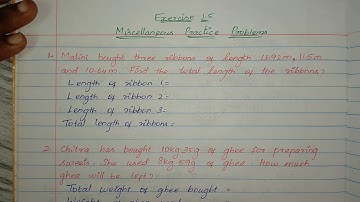 Exercise 1.5
Miscellaneous Practice Problems
1. Malini bought three ribbons of length 13.92m, 11.5m
and 10.64m. Find the total length of the ribbons?
Length of ribbon 1=
Length of ribbon 2=
Length of ribbon 3=
Total length of ribbons=
2. Chitra has bought 10kg 35g of ghee for preparing
sweets. She used 8kg 59g of ghee. How much
ghee will be left?
Total weight of ghee bought =
Weight of ghee used